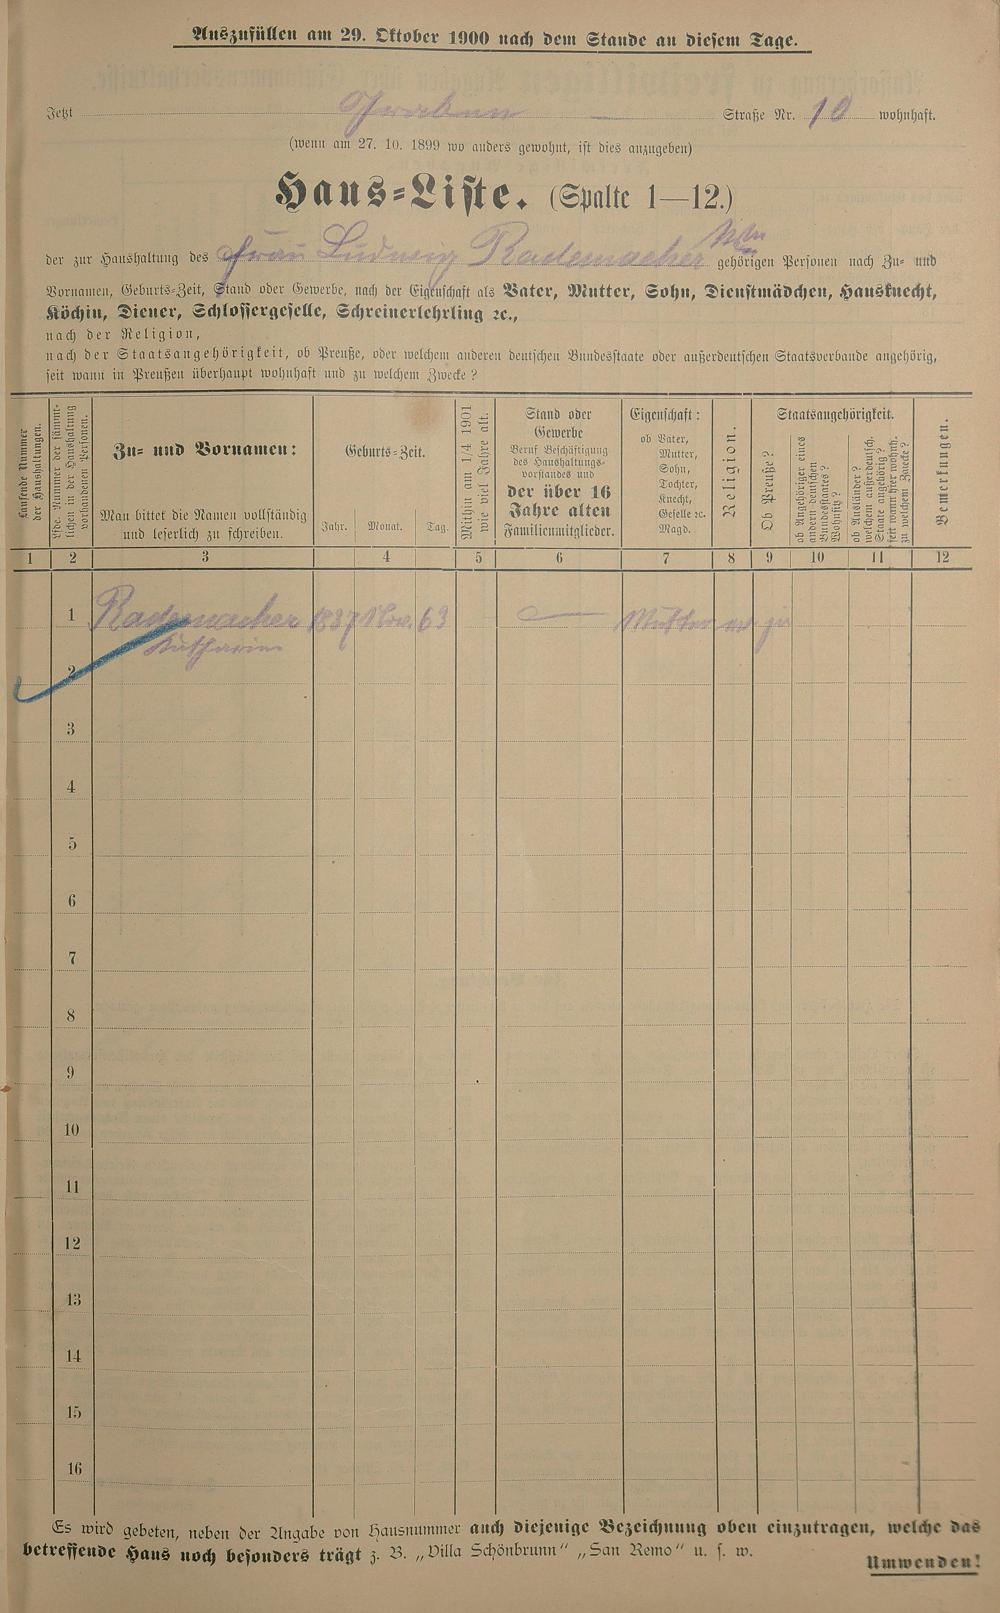 Auszufüllen am 29. Oktober 1900 nach dem Stande an diesem Tage.
Jetzt Graben Straße Nr. 10 wohnhaft.
(wenn am 27. 10. 1899 wo anders gewohnt, ist dies anzugeben)
Haus=Liste. (Spalte 1—12.)
der zur Haushaltung des Frau Ludwig Rademacher Ww gehörigen Personen nach Zu= und
Vornamen, Geburts=Zeit, Stand oder Gewerbe, nach der Eigenschaft als Vater, Mutter, Sohn, Dienstmädchen, Hausknecht,
Köchin, Diener, Schlossergeselle, Schreinerlehrling ꝛc.,
nach der Religion,
nach der Staatsangehörigkeit, ob Preuße, oder welchem anderen deutschen Bundesstaate oder außerdeutschen Staatsverbande angehörig,
seit wann in Preußen überhaupt wohnhaft und zu welchem Zwecke?
Laufende Nummer
der Haushaltungen.
Lfde. Nummer der sämmt-
lichen in der Haushaltung
vorhandenen Personen.
Zu= und Vornamen:
Man bittet die Namen vollständig
und leserlich zu schreiben.
Geburts=Zeit.
Jahr. Monat. Tag.
Mithin am 1/4 1901
wie viel Jahre alt.
Stand oder
Gewerbe
Beruf Beschäftigung
des Haushaltungs-
vorstandes und
der über 16
Jahre alten
Familienmitglieder.
Eigenschaft:
ob Vater,
Mutter,
Sohn,
Tochter,
Knecht,
Geselle ꝛc.
Magd.
Religion.
Staatsangehörigkeit.
Ob Preuße?
ob Angehöriger eines
andern deutschen
Bundesstaates?
Wohnsitz?
ob Ausländer?
welchem außerdeutsch.
Staate angehörig?
seit wann hier wohnh.
zu welchem Zwecke?
Bemerkungen.
1 2 3 4 5 6 7 8 9 10 11 12
1 Rademacher 1837 Nov. 63 — Mutter ev ja
Katharine
2
3
4
5
6
7
8
9
10
11
12
13
14
15
16
Es wird gebeten, neben der Angabe von Hausnummer auch diejenige Bezeichnung oben einzutragen, welche das
betreffende Haus noch besonders trägt z. B. „Villa Schönbrunn" „San Remo" u. s. w.
Umwenden!